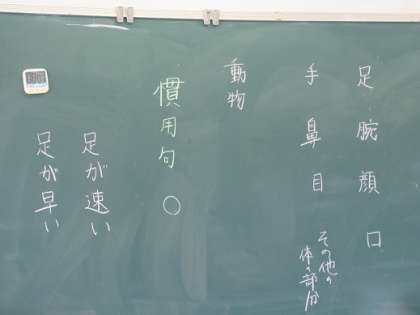 足 腕 顔 口
手 鼻 目 その他の
体の部分
動物
慣用句 ○
足が速い
足が早い